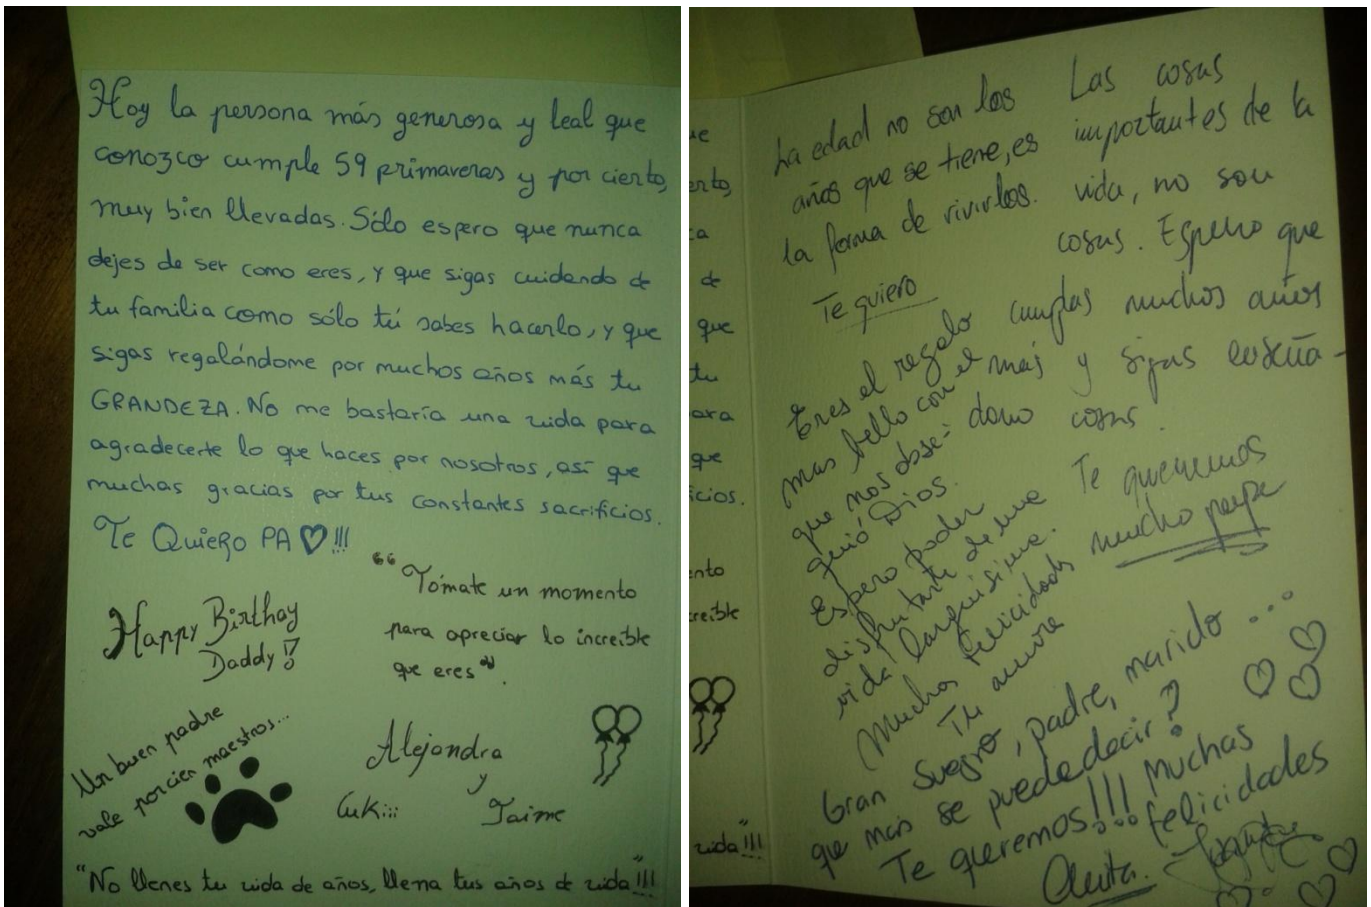 Hoy la persona más generosa y leal que
conozco cumple 59 primaveras y por cierto,
muy bien llevadas. Sólo espero que nunca
dejes de ser como eres, y que sigas cuidando de
tu familia como sólo tú sabes hacerlo, y que
sigas regalándome por muchos años más tu
GRANDEZA. No me bastaría una vida para
agradecerte lo que haces por nosotros, así que
muchas gracias por tus constantes sacrificios.
Te Quiero PA ♡!!!
"Tómate un momento
para apreciar lo increible
que eres".
Happy Birthay
Daddy!!
Un buen padre
vale por cien maestros...
Alejandra
y
Jaime
Cuki:::
"No llenes tu vida de años, llena tus años de vida"!!!
ue
erto,
ca
de
que
tu
para
que
icios.
ento
creible
vida"!!!
La edad no son los
años que se tiene, es
la forma de vivirlos.
Te quiero
Las cosas
importantes de la
vida, no son
cosas. Espero que
cumplas muchos años
más y sigas enseña-
dono cosas.
Te queremos
mucho papa
Eres el regalo
mas bello con el
que nos obse-
quió Dios.
Espero poder
disfrutarte de una
vida larguisima.
Muchas felicidades
Tu
Gran suegro, padre, marido...
que mas se puede decir?
Te queremos!!! Muchas
felicidades